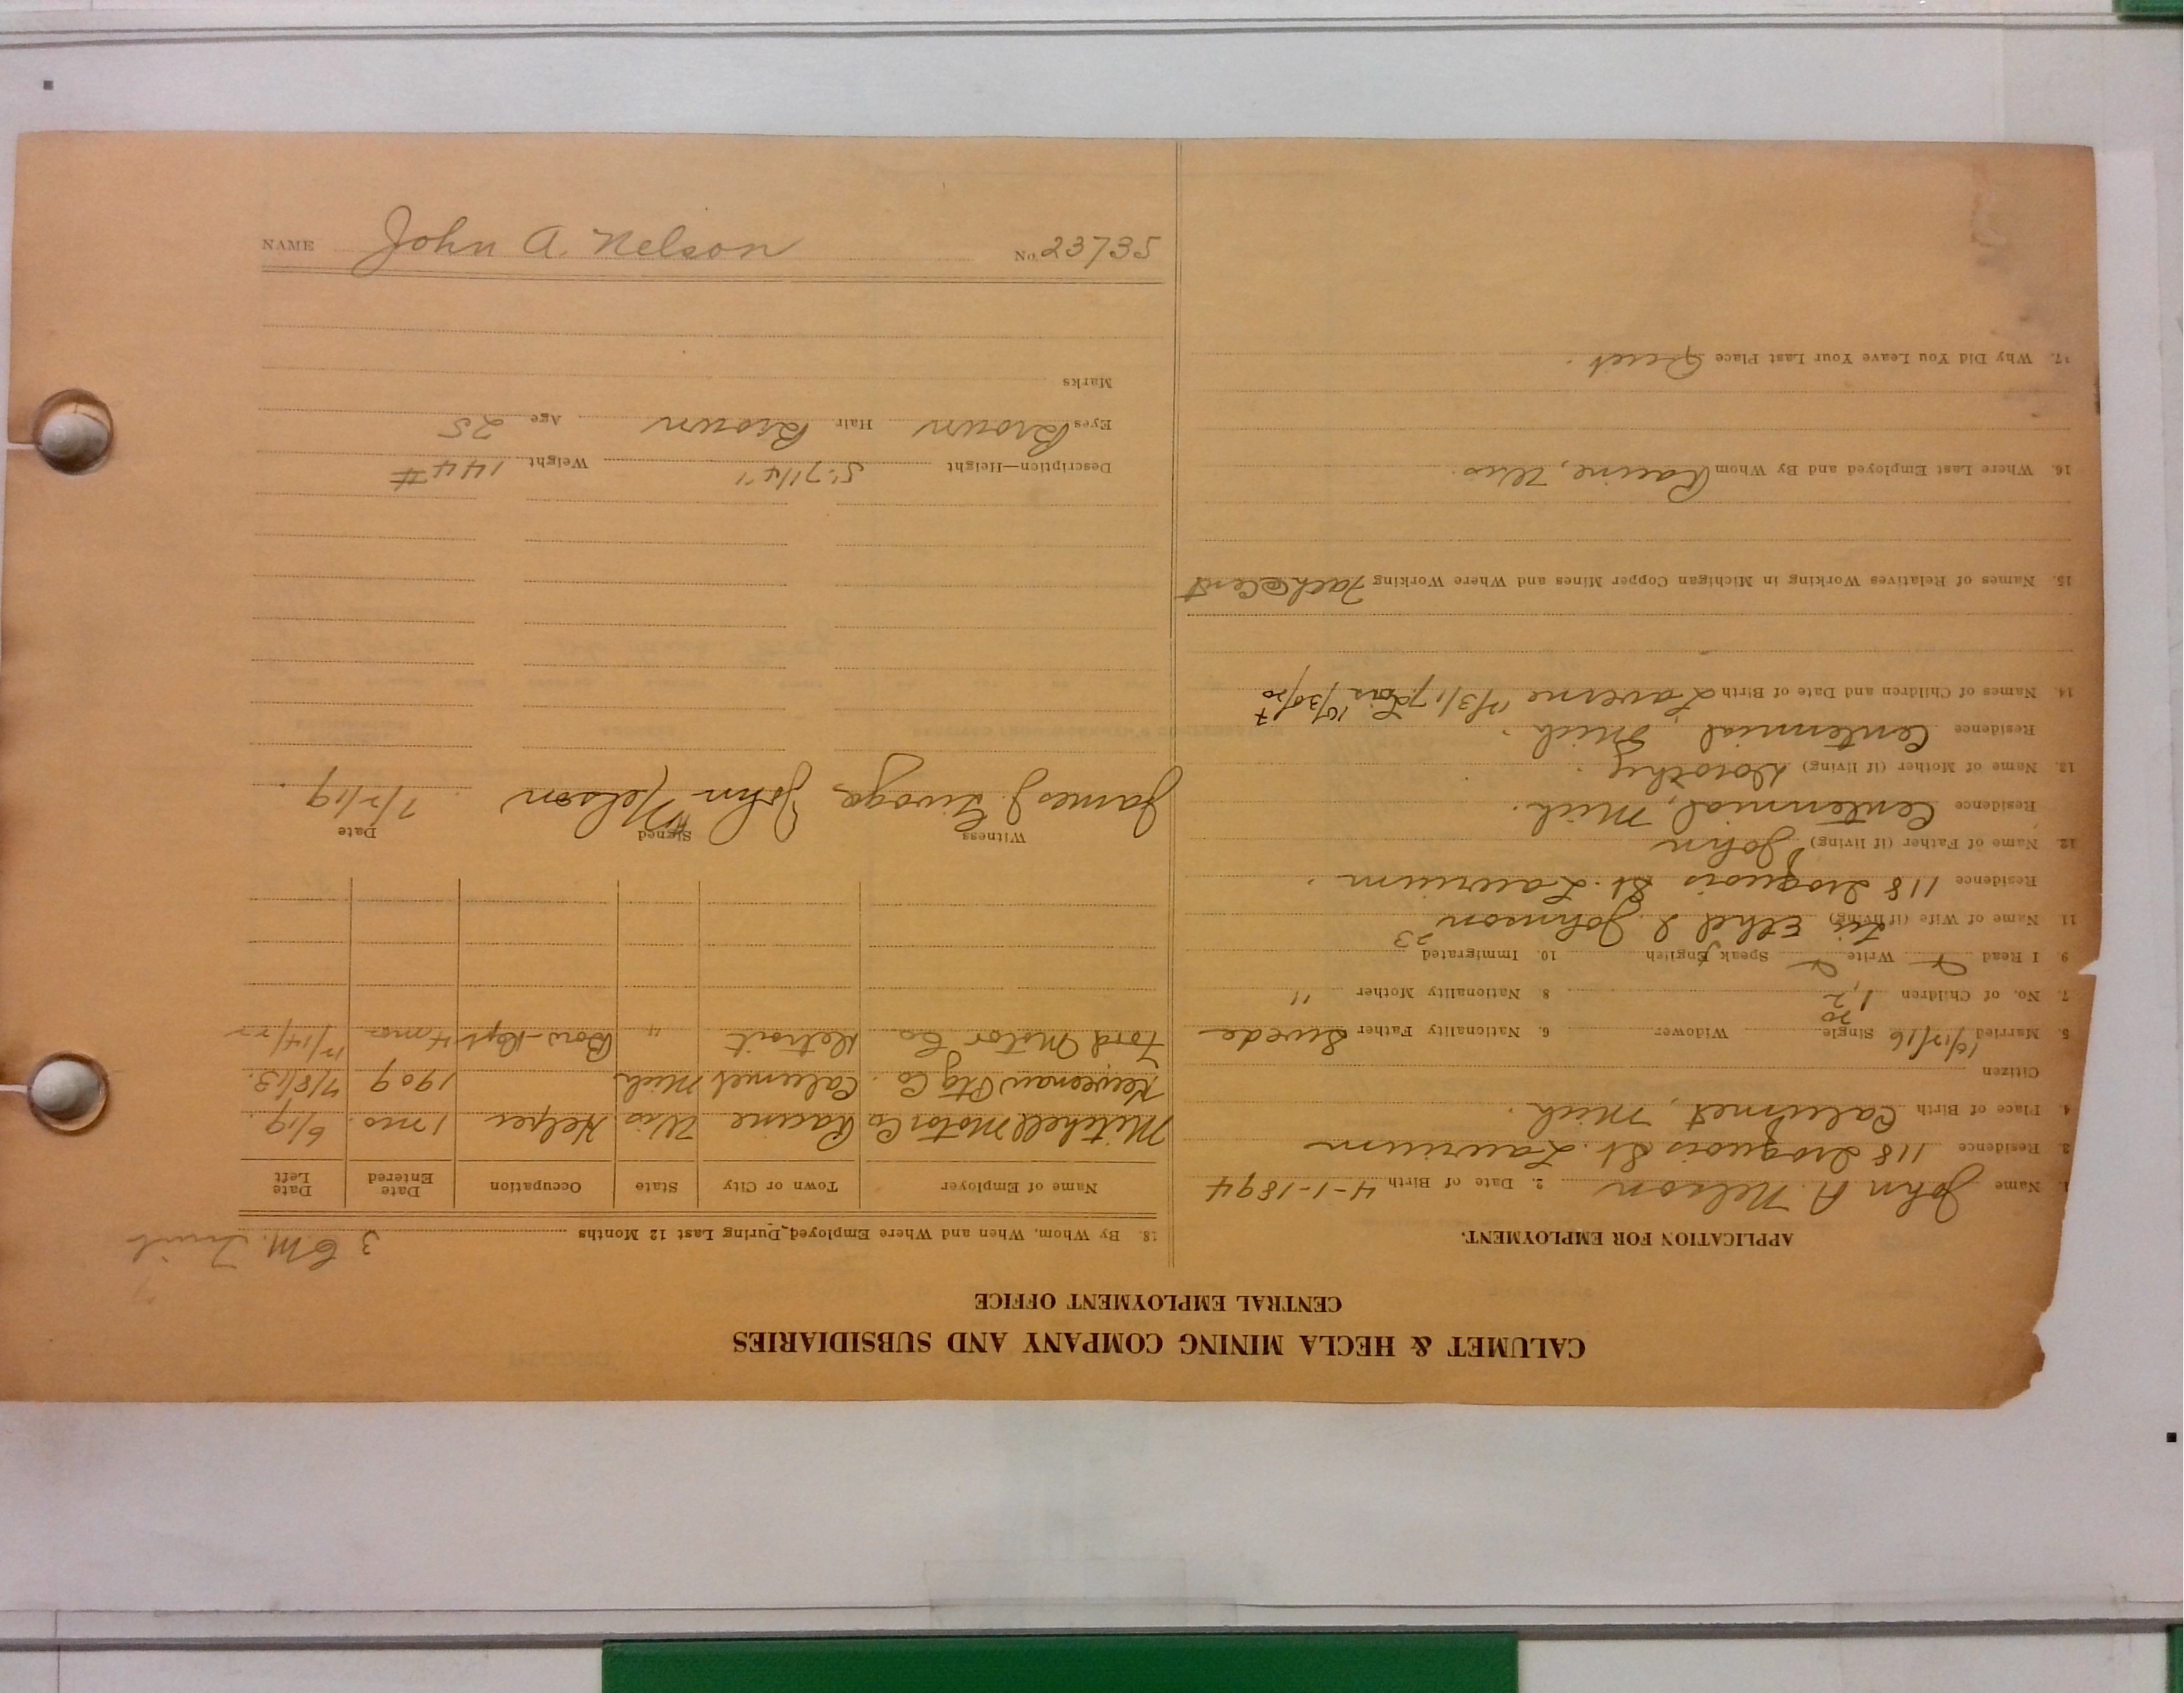 CALUMET & HECLA MINING COMPANY AND SUBSIDIARIES
CENTRAL EMPLOYMENT OFFICE
APPLICATION FOR EMPLOYMENT.
1. Name John A. Nelson 2. Date of Birth 4-1-1894
3. Residence 118 Iroquois St. Laurium
4. Place of Birth Calumet, Mich.
Citizen
5. Married 10/17/16 Single no Widower 6. Nationality Father Swede
7. No. of Children 1, 2 8 Nationality Mother "
9 I Read Write Speak English 10. Immigrated
11 Name of Wife (if living) Ethel I Johnson 23
Residence 118 Iroquois St. Laurium.
12. Name of Father (if living) John
Residence Centennial, Mich.
13. Name of Mother (if living) Dorothy.
Residence Centennial, Mich.
14. Names of Children and Date of Birth Laverne 11/3/17 Lois 10/30/20
15. Names of Relatives Working in Michigan Copper Mines and Where Working Fath @ Cent
16. Where Last Employed and By Whom Racine, Wis.
17. Why Did You Leave Your Last Place Quit.
18. By Whom, When and Where Employed During Last 12 Months
Name of Employer Town or City State Occupation Date Entered Date Left
Mitchell Motor Co Racine Wis Helper 1 mo. 6/19.
Keweenaw Ptg Co. Calumet Mich 1909 7/8/13.
Ford Motor Co. Detroit " 4 mos 12/14/22
Witness Signed Date
James J. John A Nelson 7/2/19.
Description—Height 5'7 1/4" Weight 144 #
Eyes Brown Hair Brown Age 25
Marks
NAME John A. Nelson No. 23735